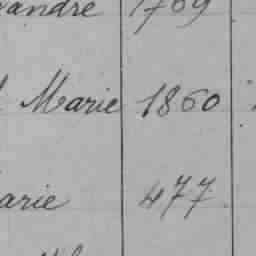 andre 1769
Marie 1860
arie 477